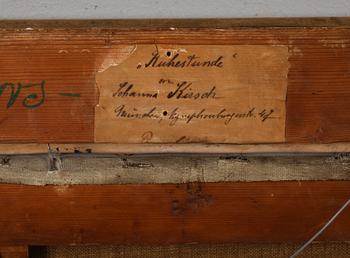 "Ruhestunde"
von
Johanna Kirsch
München, Nymphenburgerstr. 47